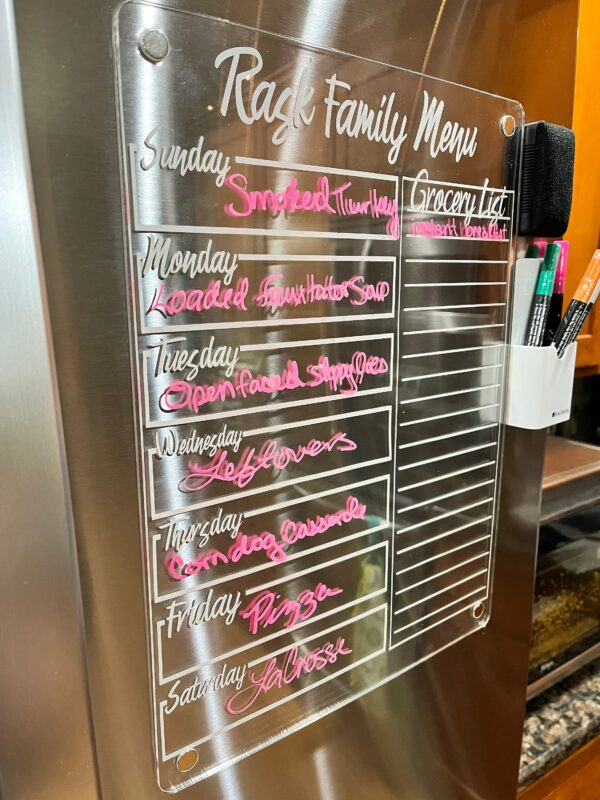 Rask Family Menu
Sunday
Smoked Turkey
Monday
Loaded Faux tator Soup
Tuesday
Open faced sloppy Joes
Wednesday
Leftovers
Thursday
Corn dog Casserole
Friday
Pizza
Saturday
LaCrosse
Grocery List
instant breakfast